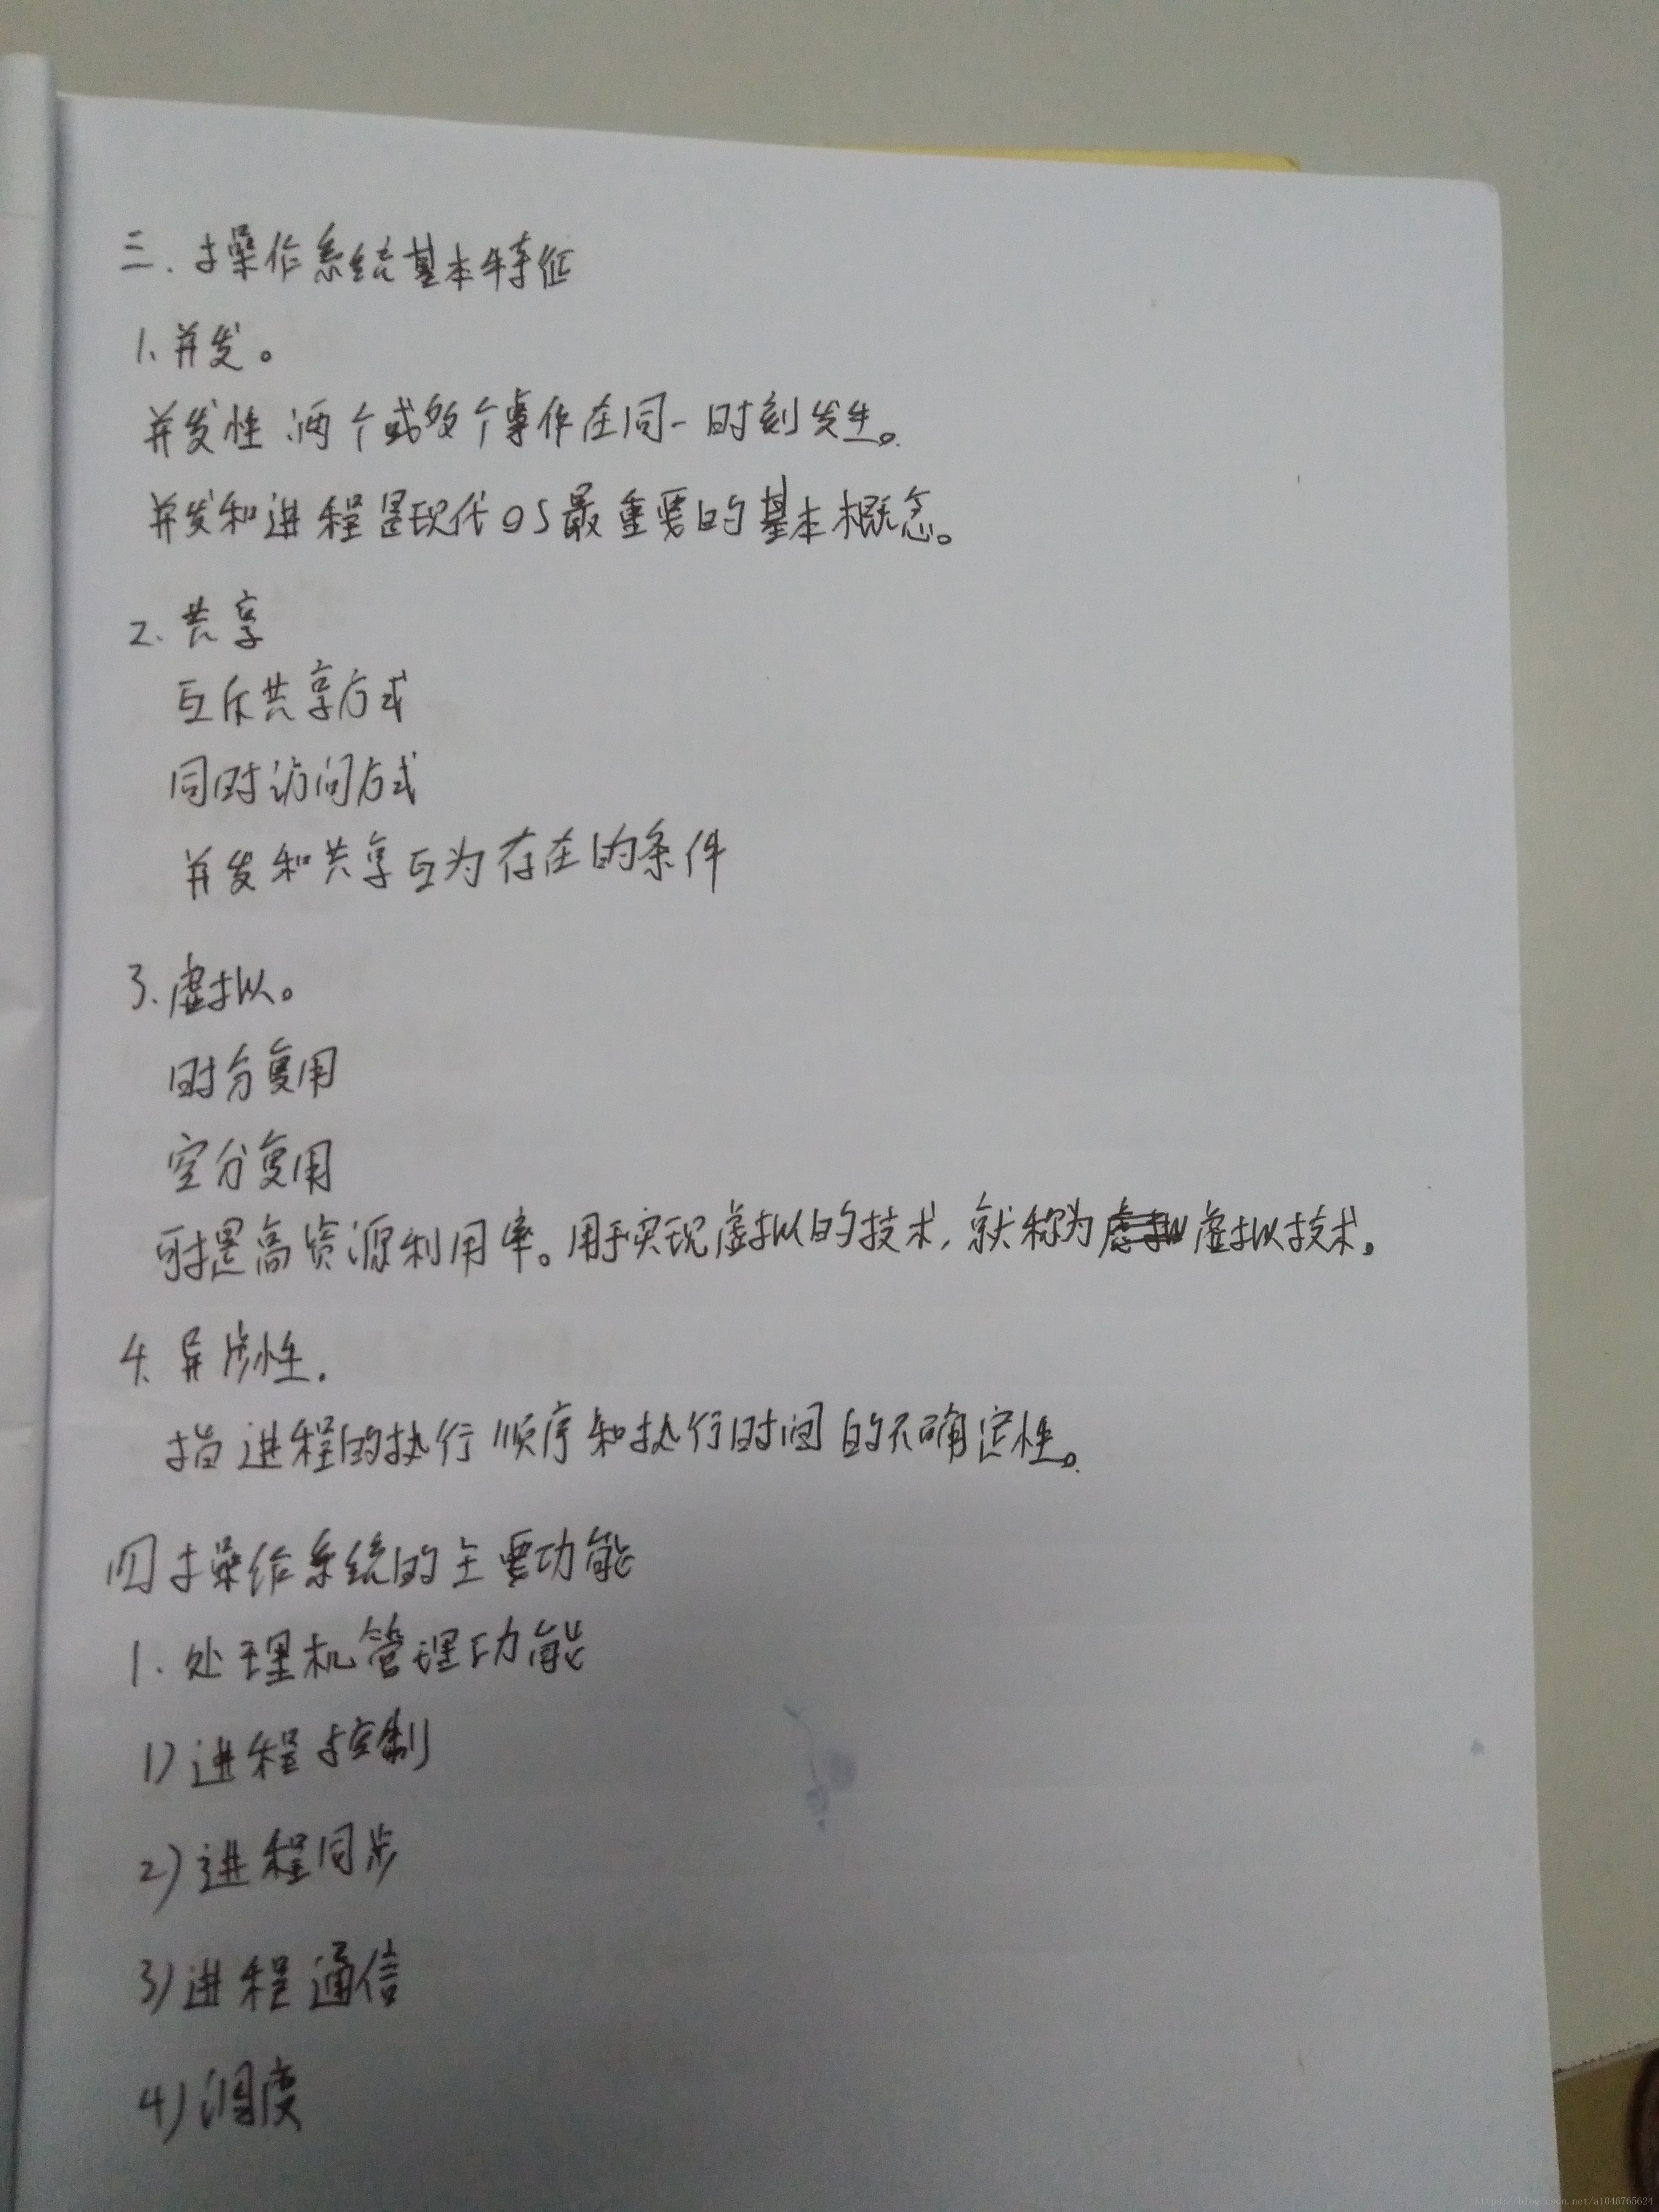 三.操作系统基本特征
1、并发。
并发性:两个或多个事件在同一时刻发生。
并发和进程是现代OS最重要的基本概念。
2、共享
互斥共享方式
同时访问方式
并发和共享互为存在的条件
3、虚拟。
时分复用
空分复用
可提高资源利用率。用于实现虚拟的技术,就称为虚拟技术。
4.异步性.
指进程的执行顺序和执行时间的不确定性。
四操作系统的主要功能
1.处理机管理功能
1)进程控制
2)进程同步
3)进程通信
4)调度
https://blog.csdn.net/a1046765624